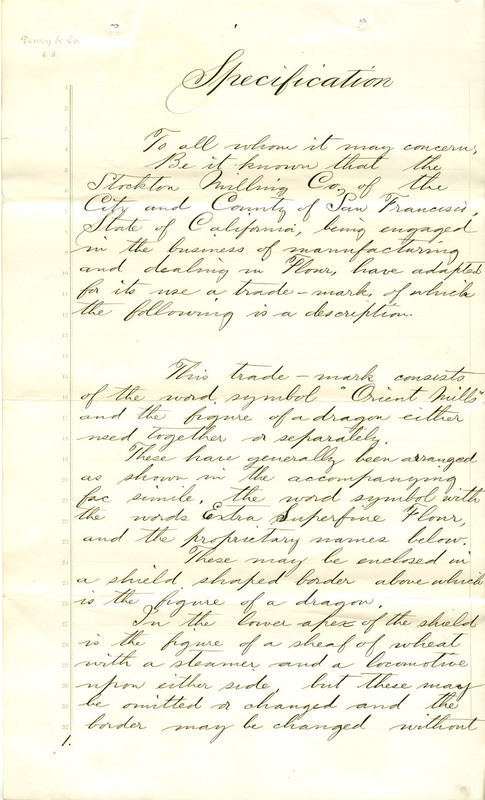 Dewey & Co.
S. F.
Specification
To all whom it may concern;
Be it known that the
Stockton Milling Co, of the
City and County of San Francisco,
State of California, being engaged
in the business of manufacturing
and dealing in Flour, have adopted
for its use a trade-mark, of which
the following is a description.
This trade-mark consists
of the word symbol "Orient Mills"
and the figure of a dragon either
used together or separately.
These have generally been arranged
as shown in the accompanying
fac simile, the word symbol with
the words Extra Superfine Flour,
and the proprietary names below.
These may be enclosed in
a shield shaped border above which
is the figure of a dragon.
In the lower apex of the shield
is the figure of a sheaf of wheat
with a steamer and a locomotive
upon either side but these may
be omitted or changed and the
border may be changed without
1.